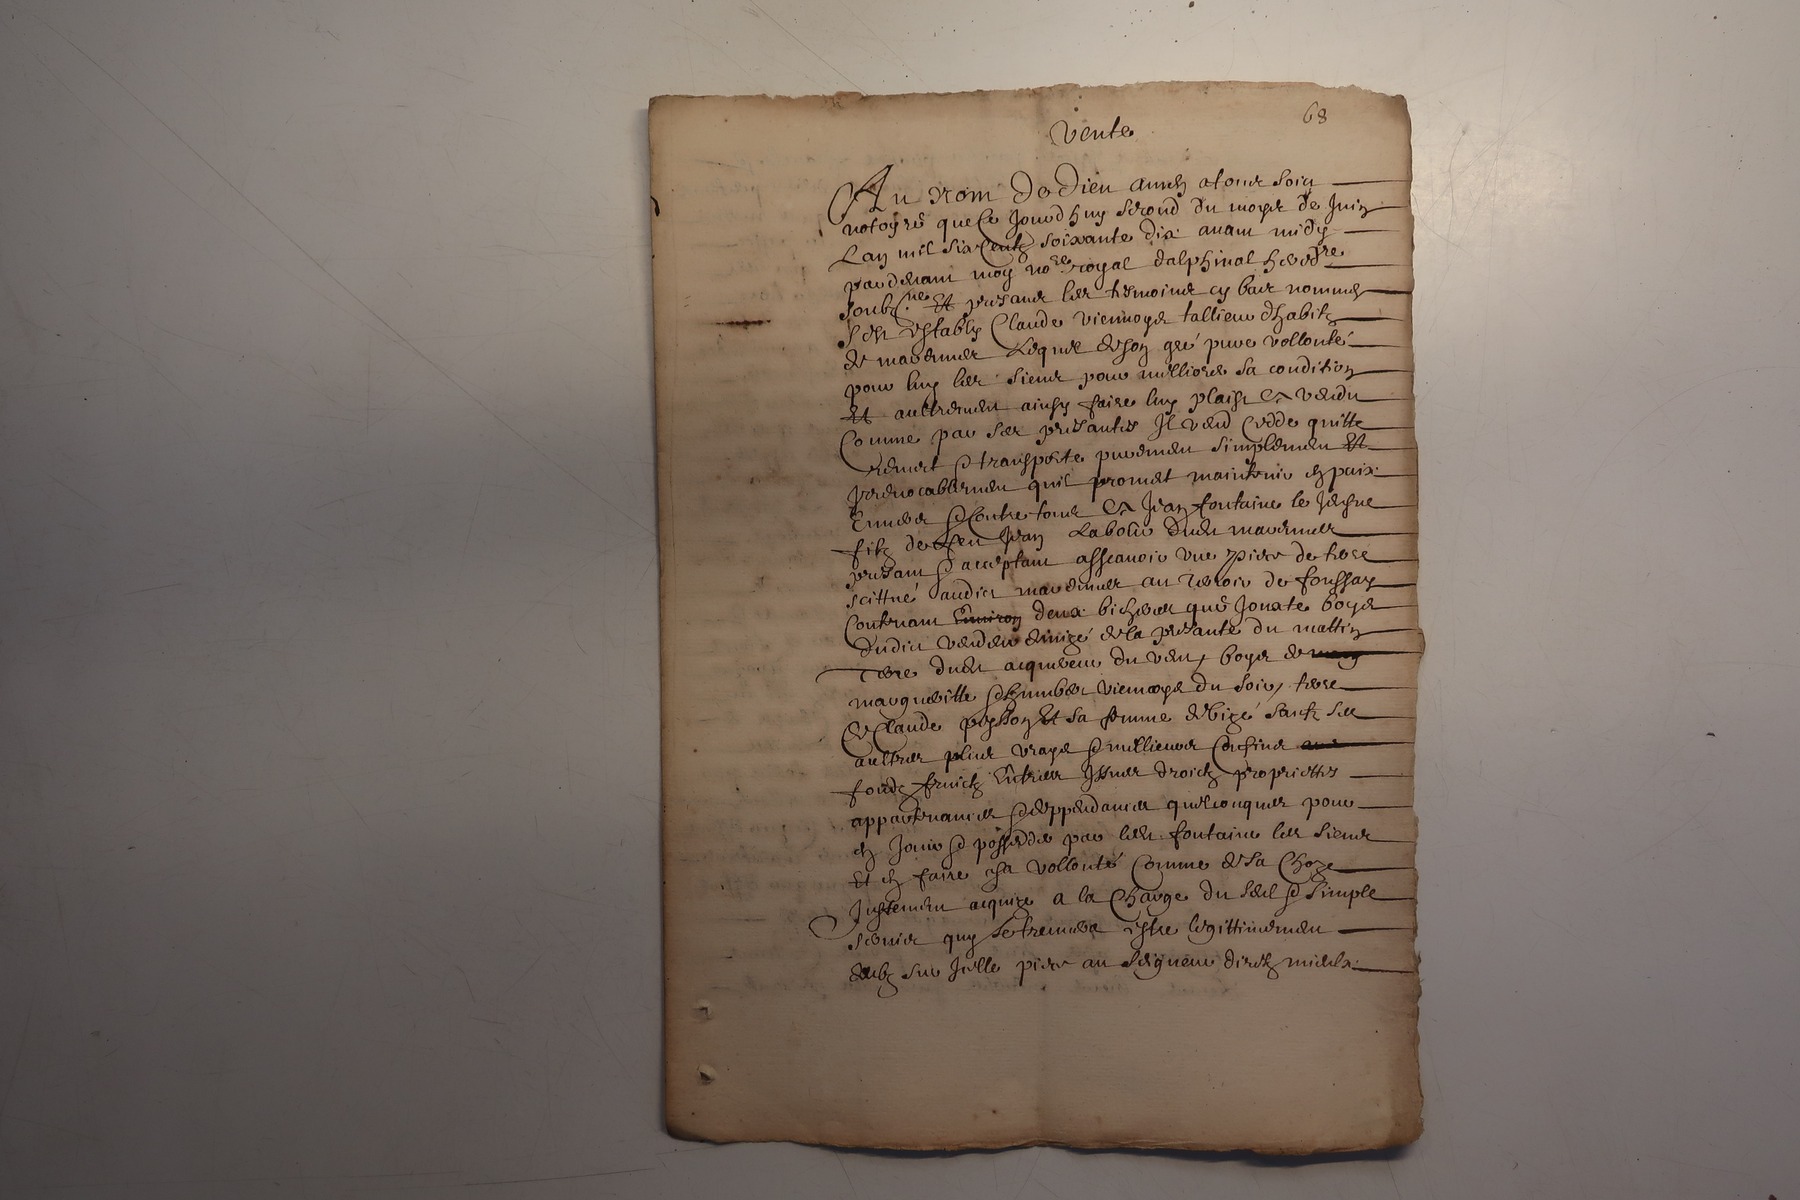 68
Vente
Au nom de Dieu amen a tous soit
notoyre que ce jourd'huy second du moys de Juin
L'an mil six centz soixante dix avant midy
par devant moy no.re royal dalphinal hered.re
soubz.ne Et presans les tesmoins cy bas nommes
s'est estably Claude Viennoys tallieur d'habitz
de Lequel de son gré pure vollonté
pour luy les siens pour milliorer sa condition
Et aultrement ainsy faire luy plaist a vendu
Comme par ses presantes Il vend cedde quitte
remect & transporte purement simplement Et
Irrevocablement quil promet maintenir en paix
Envers & Contre tous a Jean fontaine le jeusne
filz de feu Jean dudit
presant & acceptant asscavoir une piece de terre
scittué audict au terroir de
Contenant Environ deux bicherees que Jouxte boys
dudict vendeur de la presante du mattin
terre dudit acquereur du vent boys de
& humbert Viennoys du soir terre
de Claude Et sa femme sautz ses
aultres plus vrays & millieurs confins
fondz fruictz Entrees Issues droictz proprietes
appartenances & deppendances quelconques pour
en Jouir & posseder par ledit fontaine les siens
Et en faire a sa vollonté Comme de sa Choze
Justement acquize a la Charge du seul & simple
servis quy se treuvera estre legittimement
deubz sur Jcelle piece au seigneur direct